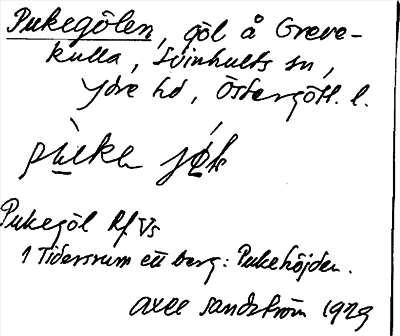 Pukegölen, göl å Greve-
kulla, Svinhults sn,
Ydre hd, Östergötl. l.
Pukegöl Rf Vs
1 Tidersrum ett berg: Pukehöjden.
Axel Sandström 1929